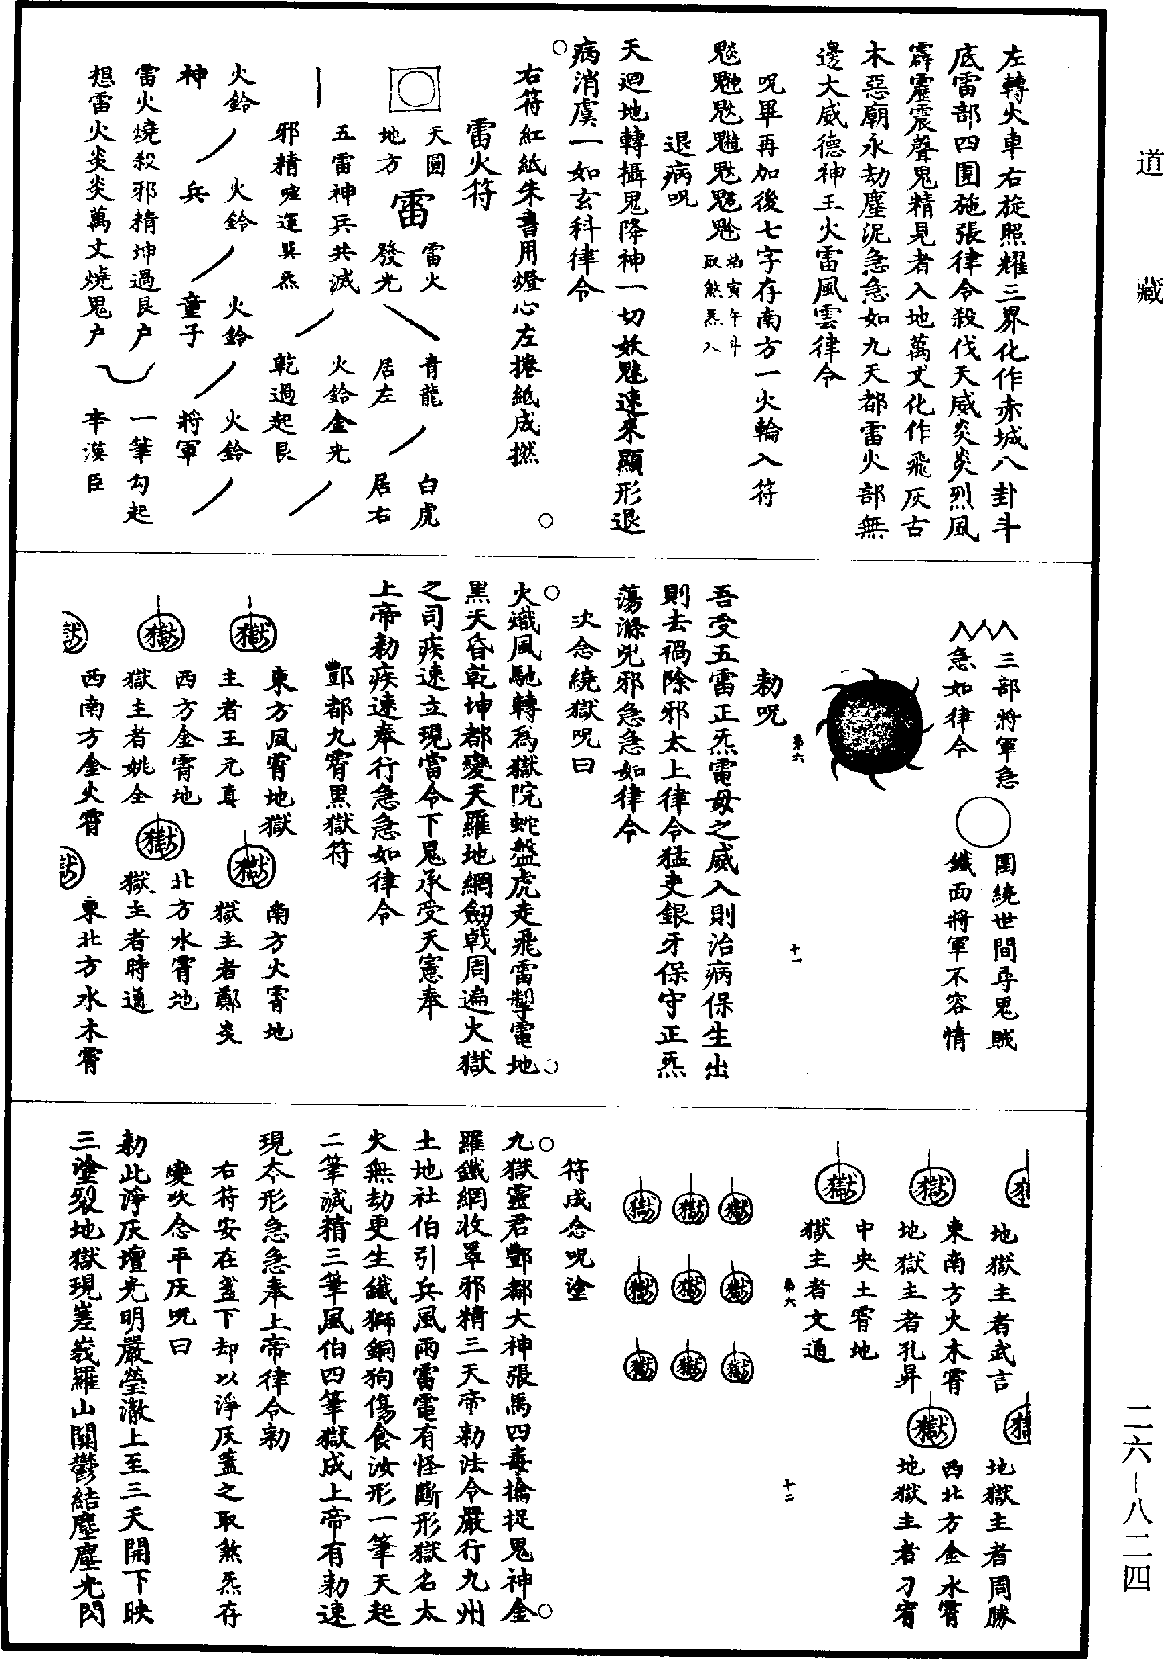 道藏
左轉火車右旋照耀三界化作赤城八卦斗
底雷部四圍施張律令殺伐天威炎炎烈風
霹靂震聲鬼精見者入地萬丈化作飛灰古
木惡廟永劫塵泥急急如九天都雷火部無
邊大威德神王火雷風雲律令
呪畢再加後七字存南方一火輪入符
取煞炁入
退病呪
天迴地轉攝鬼降神一切妖魅速來顯形退
病消虞一如玄科律令
右符紅紙朱書用燈心左捲紙成撚
雷火符
天圓 雷火 青龍 白虎
地方 發光 居左 居右
雷
五雷神兵共滅 火鈴金光
邪精 運巽炁 乾過起艮
火鈴 火鈴 火鈴 火鈴
神 兵 童子 將軍
雷火燒殺邪精坤過艮户 一筆勾起
想雷火炎炎萬丈燒鬼户 李漢臣
三部將軍急 圍繞世間尋鬼賊
急如律令 鐵面將軍不容情
第六 十一
勑呪
吾受五雷正炁電母之威入則治病保生出
則去禍除邪太上律令猛吏銀牙保守正炁
蕩滌兇邪急急如律令
次念繞獄呪曰
火熾風馳轉為獄院蛇盤虎走飛雷掣電地
黑天昏乾坤都變天羅地網劒戟周遍火獄
之司疾速立現當令下鬼承受天憲奉
上帝勑疾速奉行急急如律令
酆都九霄黑獄符
獄 東方風霄地獄 獄 南方火霄地
主者王元真 獄主者鄭炎
獄 西方金霄地 獄 北方水霄地
獄主者姚全 獄主者時通
獄 西南方金火霄 獄 東北方水木霄
獄 地獄主者武言 獄 地獄主者周勝
獄 東南方火木霄 獄 西北方金水霄
地獄主者孔昇 地獄主者刁宥
獄 中央土霄地
獄主者文通
第六 十二
獄 獄 獄
獄 獄 獄
獄 獄 獄
符成念呪塗
九獄靈君酆都大神張馬四毒擒捉鬼神金
羅鐵網收罩邪精三天帝勑法令嚴行九州
土地社伯引兵風雨雷電有怪斷形獄名太
火無劫更生鐵獅銅狗傷食汝形一筆天起
二筆滅精三筆風伯四筆獄成上帝有勑速
現本形急急奉上帝律令勑
右符安在盞下却以淨灰蓋之取煞炁存
變吹念平灰呪曰
勑此淨灰壇光明嚴瑩澈上至三天開下映
三塗裂地獄現嵳峩羅山關鬱結塵塵光閃
二六—八二四